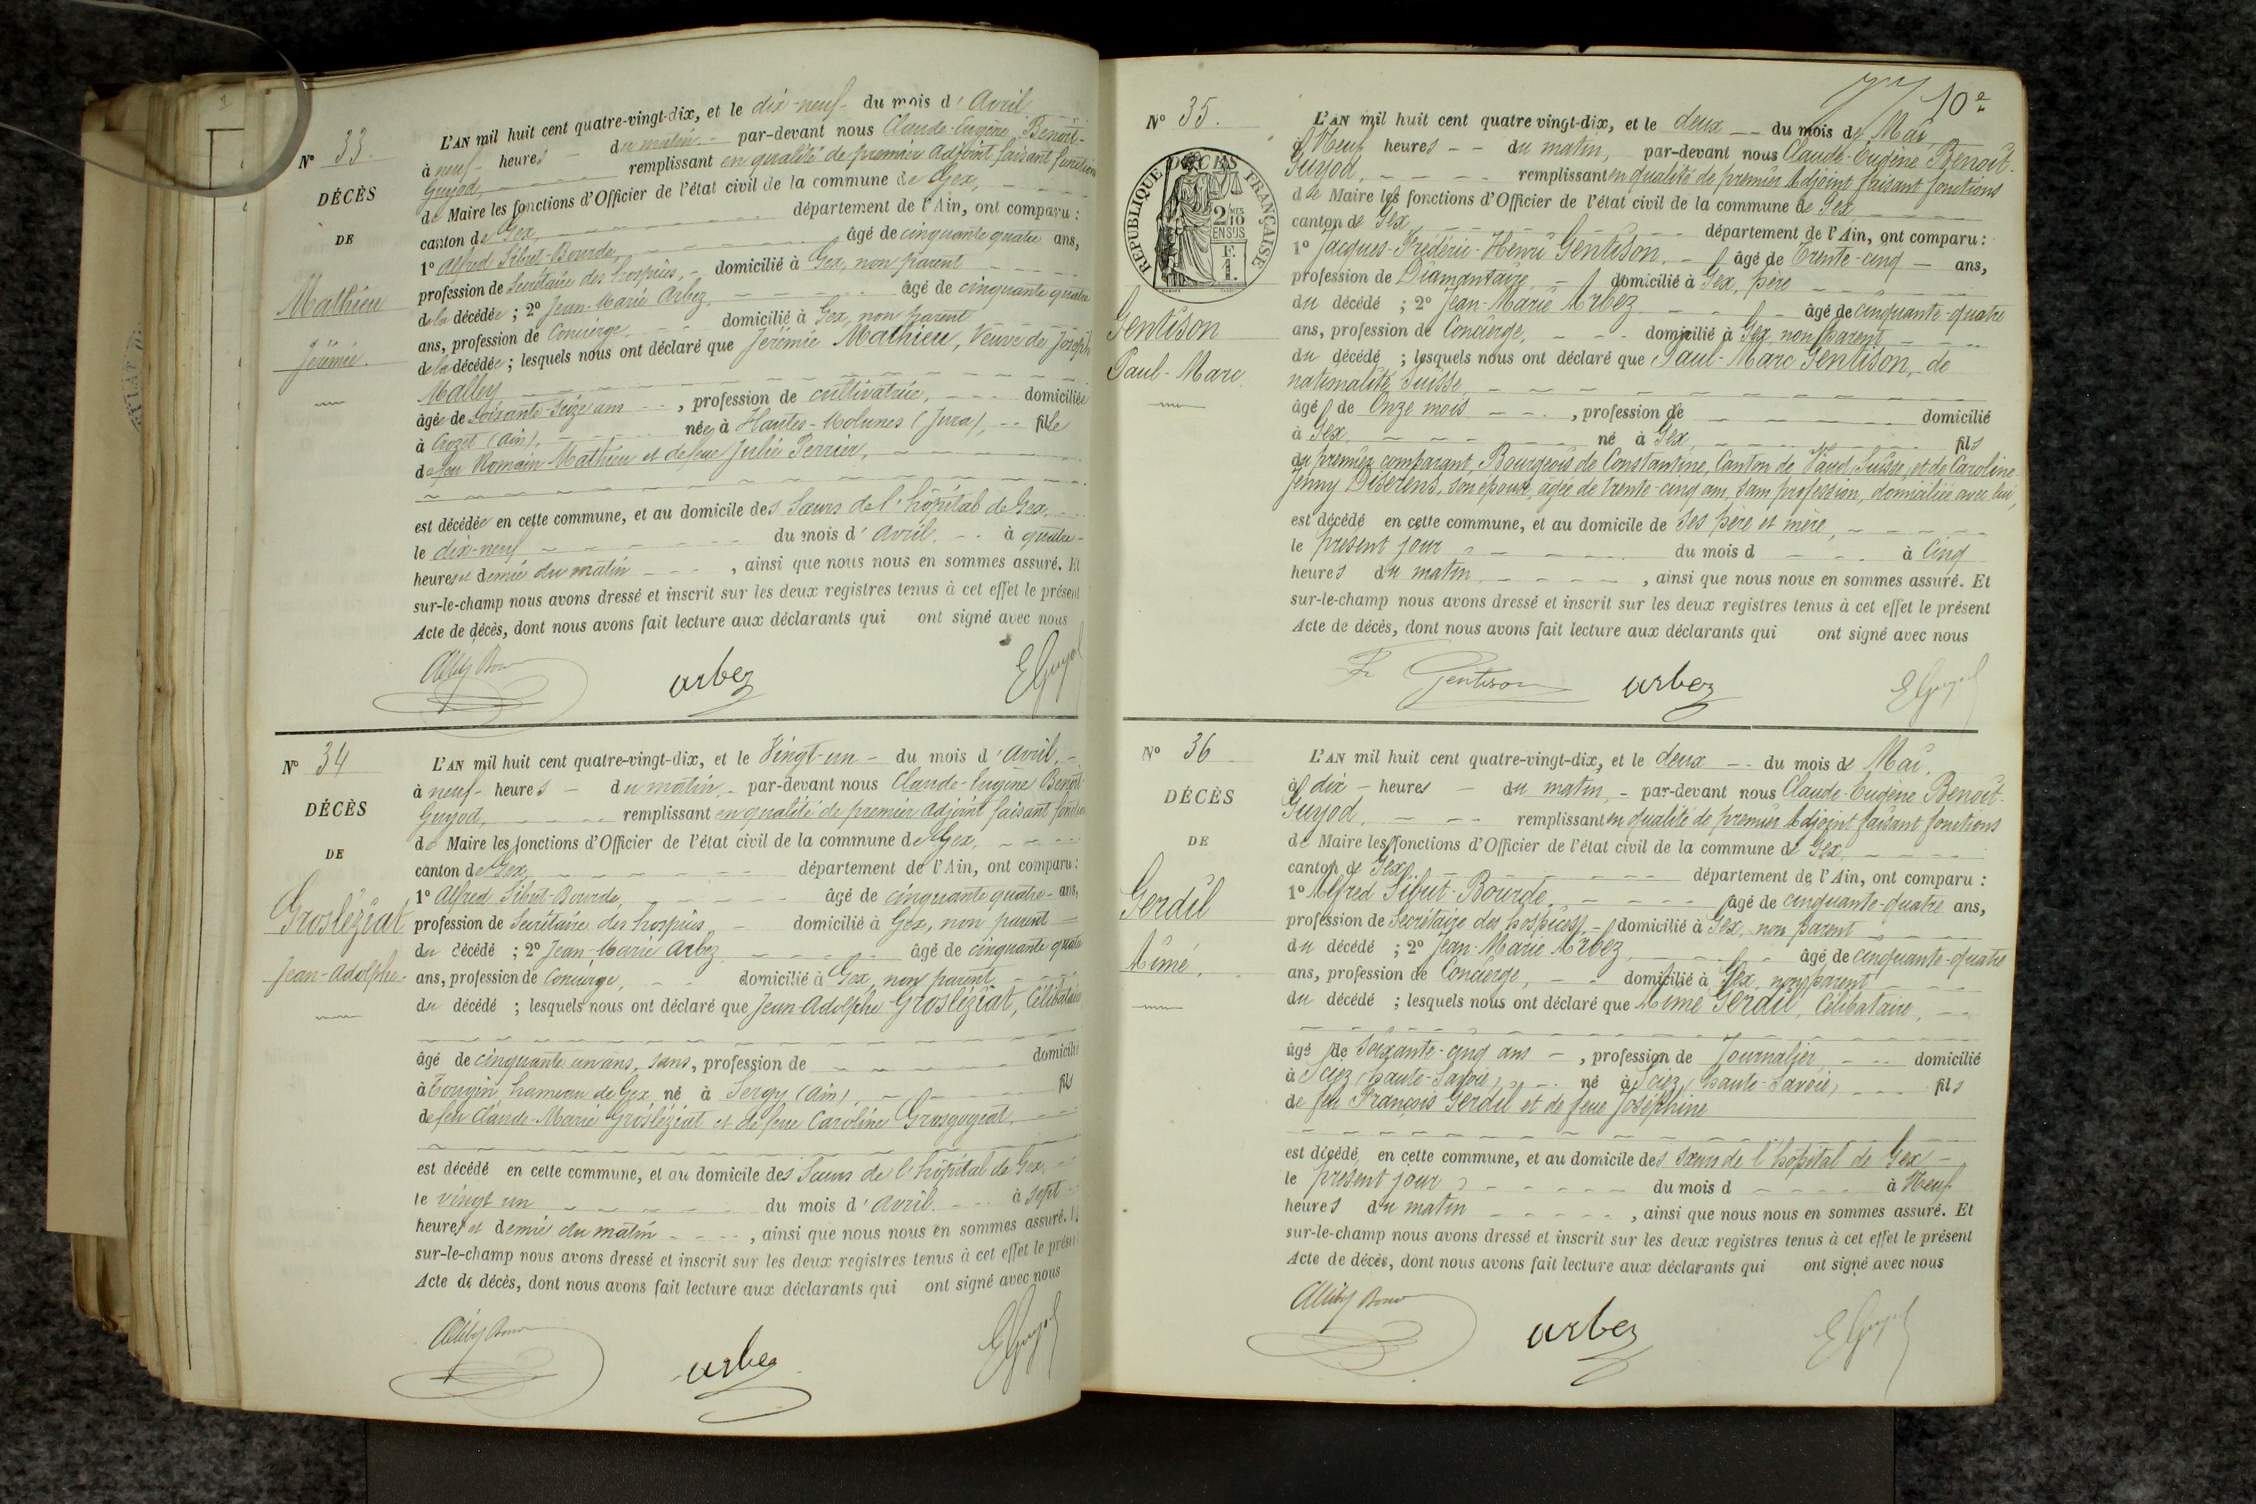 N° 33.
DÉCÈS
DE
Mathieu
Jérémie.
L'AN mil huit cent quatre-vingt-dix, et le dix-neuf du mois d'Avril
à neuf heures du matin par-devant nous Claude-Eugène Benoît-
Guyod, remplissant en qualité de premier adjoint faisant fonctions
de Maire les fonctions d'Officier de l'état civil de la commune de Gex,
canton de Gex, département de l'Ain, ont comparu :
1° Alfred Sibut-Bourde, âgé de cinquante quatre ans,
profession de Secrétaire des hospices, domicilié à Gex, non parent
de la décédée ; 2° Jean-Marie Arbez, âgé de cinquante quatre
ans, profession de Concierge, domicilié à Gex, non parent
de la décédée ; lesquels nous ont déclaré que Jérémie Mathieu, Veuve de Joseph
Malley
âgée de soixante-seize ans, profession de cultivatrice, domiciliée
à Crozet (Ain), née à Hautes-Molunes (Jura), fille
de feu Romain Mathieu et de feue Julie Perrier,
est décédée en cette commune, et au domicile des Sœurs de l'hôpital de Gex,
le dix-neuf du mois d'avril à quatre
heures et demie du matin, ainsi que nous nous en sommes assuré. Et
sur-le-champ nous avons dressé et inscrit sur les deux registres tenus à cet effet le présent
Acte de décès, dont nous avons fait lecture aux déclarants qui ont signé avec nous
arbez
E Guyod
N° 34
DÉCÈS
DE
Grosléziat
Jean-Adolphe
L'AN mil huit cent quatre-vingt-dix, et le Vingt-un du mois d'avril,
à neuf heures du matin par-devant nous Claude-Eugène Benoît
Guyod, remplissant en qualité de premier adjoint faisant fonctions
de Maire les fonctions d'Officier de l'état civil de la commune de Gex,
canton de Gex département de l'Ain, ont comparu :
1° Alfred Sibut-Bourde, âgé de cinquante quatre ans,
profession de Secrétaire des hospices, domicilié à Gex, non parent
du décédé ; 2° Jean-Marie Arbez âgé de cinquante quatre
ans, profession de Concierge, domicilié à Gex, non parent
du décédé ; lesquels nous ont déclaré que Jean-Adolphe Grosléziat, Célibataire
âgé de cinquante un ans, sans, profession de domicilié
à Tougin, hameau de Gex, né à Sergy (Ain), fils
de feu Claude-Marie Grosléziat et de feue Caroline Grosgogeat,
est décédé en cette commune, et au domicile des Sœurs de l'hôpital de Gex,
le vingt un du mois d'avril à sept
heures et demie du matin, ainsi que nous nous en sommes assuré. Et
sur-le-champ nous avons dressé et inscrit sur les deux registres tenus à cet effet le présent
Acte de décès, dont nous avons fait lecture aux déclarants qui ont signé avec nous
arbez
E Guyod
10e
N° 35.
DÉCÈS
RÉPUBLIQUE FRANÇAISE
2/10
EN SUS
F.
1.
Gentison
Paul-Marc
L'AN mil huit cent quatre vingt-dix, et le deux du mois de Mai
à Neuf heures du matin, par-devant nous Claude-Eugène Benoît-
Guyod, remplissant en qualité de premier Adjoint faisant fonctions
de Maire les fonctions d'Officier de l'état civil de la commune de Gex
canton de Gex, département de l'Ain, ont comparu :
1° Jacques-Frédéric-Henri Gentison, âgé de Trente-cinq ans,
profession de Diamantaire, domicilié à Gex, père
du décédé ; 2° Jean-Marie Arbez âgé de cinquante-quatre
ans, profession de Concierge, domicilié à Gex, non parent
du décédé ; lesquels nous ont déclaré que Paul-Marc Gentison, de
nationalité Suisse
âgé de Onze mois, profession de domicilié
à Gex né à Gex, fils
du premier comparant, Bourgeois de Constantine, Canton de Vaud, Suisse, et de Caroline-
Jenny Diserens, son épouse, âgée de trente-cinq ans, sans profession, domiciliée avec lui,
est décédé en cette commune, et au domicile de ses père et mère,
le présent jour du mois d à Cinq
heures du matin, ainsi que nous nous en sommes assuré. Et
sur-le-champ nous avons dressé et inscrit sur les deux registres tenus à cet effet le présent
Acte de décès, dont nous avons fait lecture aux déclarants qui ont signé avec nous
Gentison
arbez
E Guyod
N° 36
DÉCÈS
DE
Gerdil
Aimé.
L'AN mil huit cent quatre-vingt-dix, et le deux du mois de Mai,
à dix heures du matin, par-devant nous Claude-Eugène Benoît-
Guyod, remplissant en qualité de premier Adjoint faisant fonctions
de Maire les fonctions d'Officier de l'état civil de la commune de Gex
canton de Gex département de l'Ain, ont comparu :
1° Alfred Sibut-Bourde, âgé de cinquante-quatre ans,
profession de Secrétaire des hospices, domicilié à Gex, non parent
du décédé ; 2° Jean-Marie Arbez, âgé de cinquante-quatre
ans, profession de Concierge, domicilié à Gex, non parent
du décédé ; lesquels nous ont déclaré que Aimé Gerdil, Célibataire,
âgé de Soixante-cinq ans, profession de Journalier, domicilié
à Sciez (haute-Savoie), né à Sciez (haute-Savoie) fils
de feu François Gerdil et de feue Joséphine
est décédé en cette commune, et au domicile des sœurs de l'hôpital de Gex
le présent jour du mois d à Neuf
heures du matin, ainsi que nous nous en sommes assuré. Et
sur-le-champ nous avons dressé et inscrit sur les deux registres tenus à cet effet le présent
Acte de décès, dont nous avons fait lecture aux déclarants qui ont signé avec nous
arbez
E Guyod